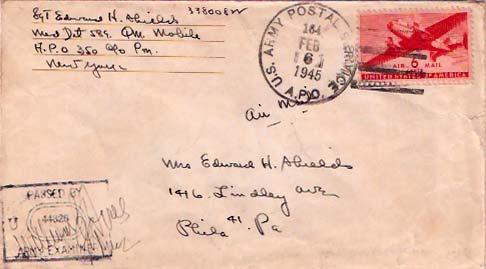 Sgt Edward H. Shields 33800824
Med Det 589. QM. Mobile
A.P.O 350 c/o Pm.
New York
U.S. ARMY POSTAL SERVICE
164
FEB
6
1945
A.P.O.
AIR 6¢ MAIL
UNITED STATES OF AMERICA
Air Mail
Mrs Edward H. Shields
1416. Lindley Ave
Phila 41. Pa
PASSED BY
44826
ARMY EXAMINER